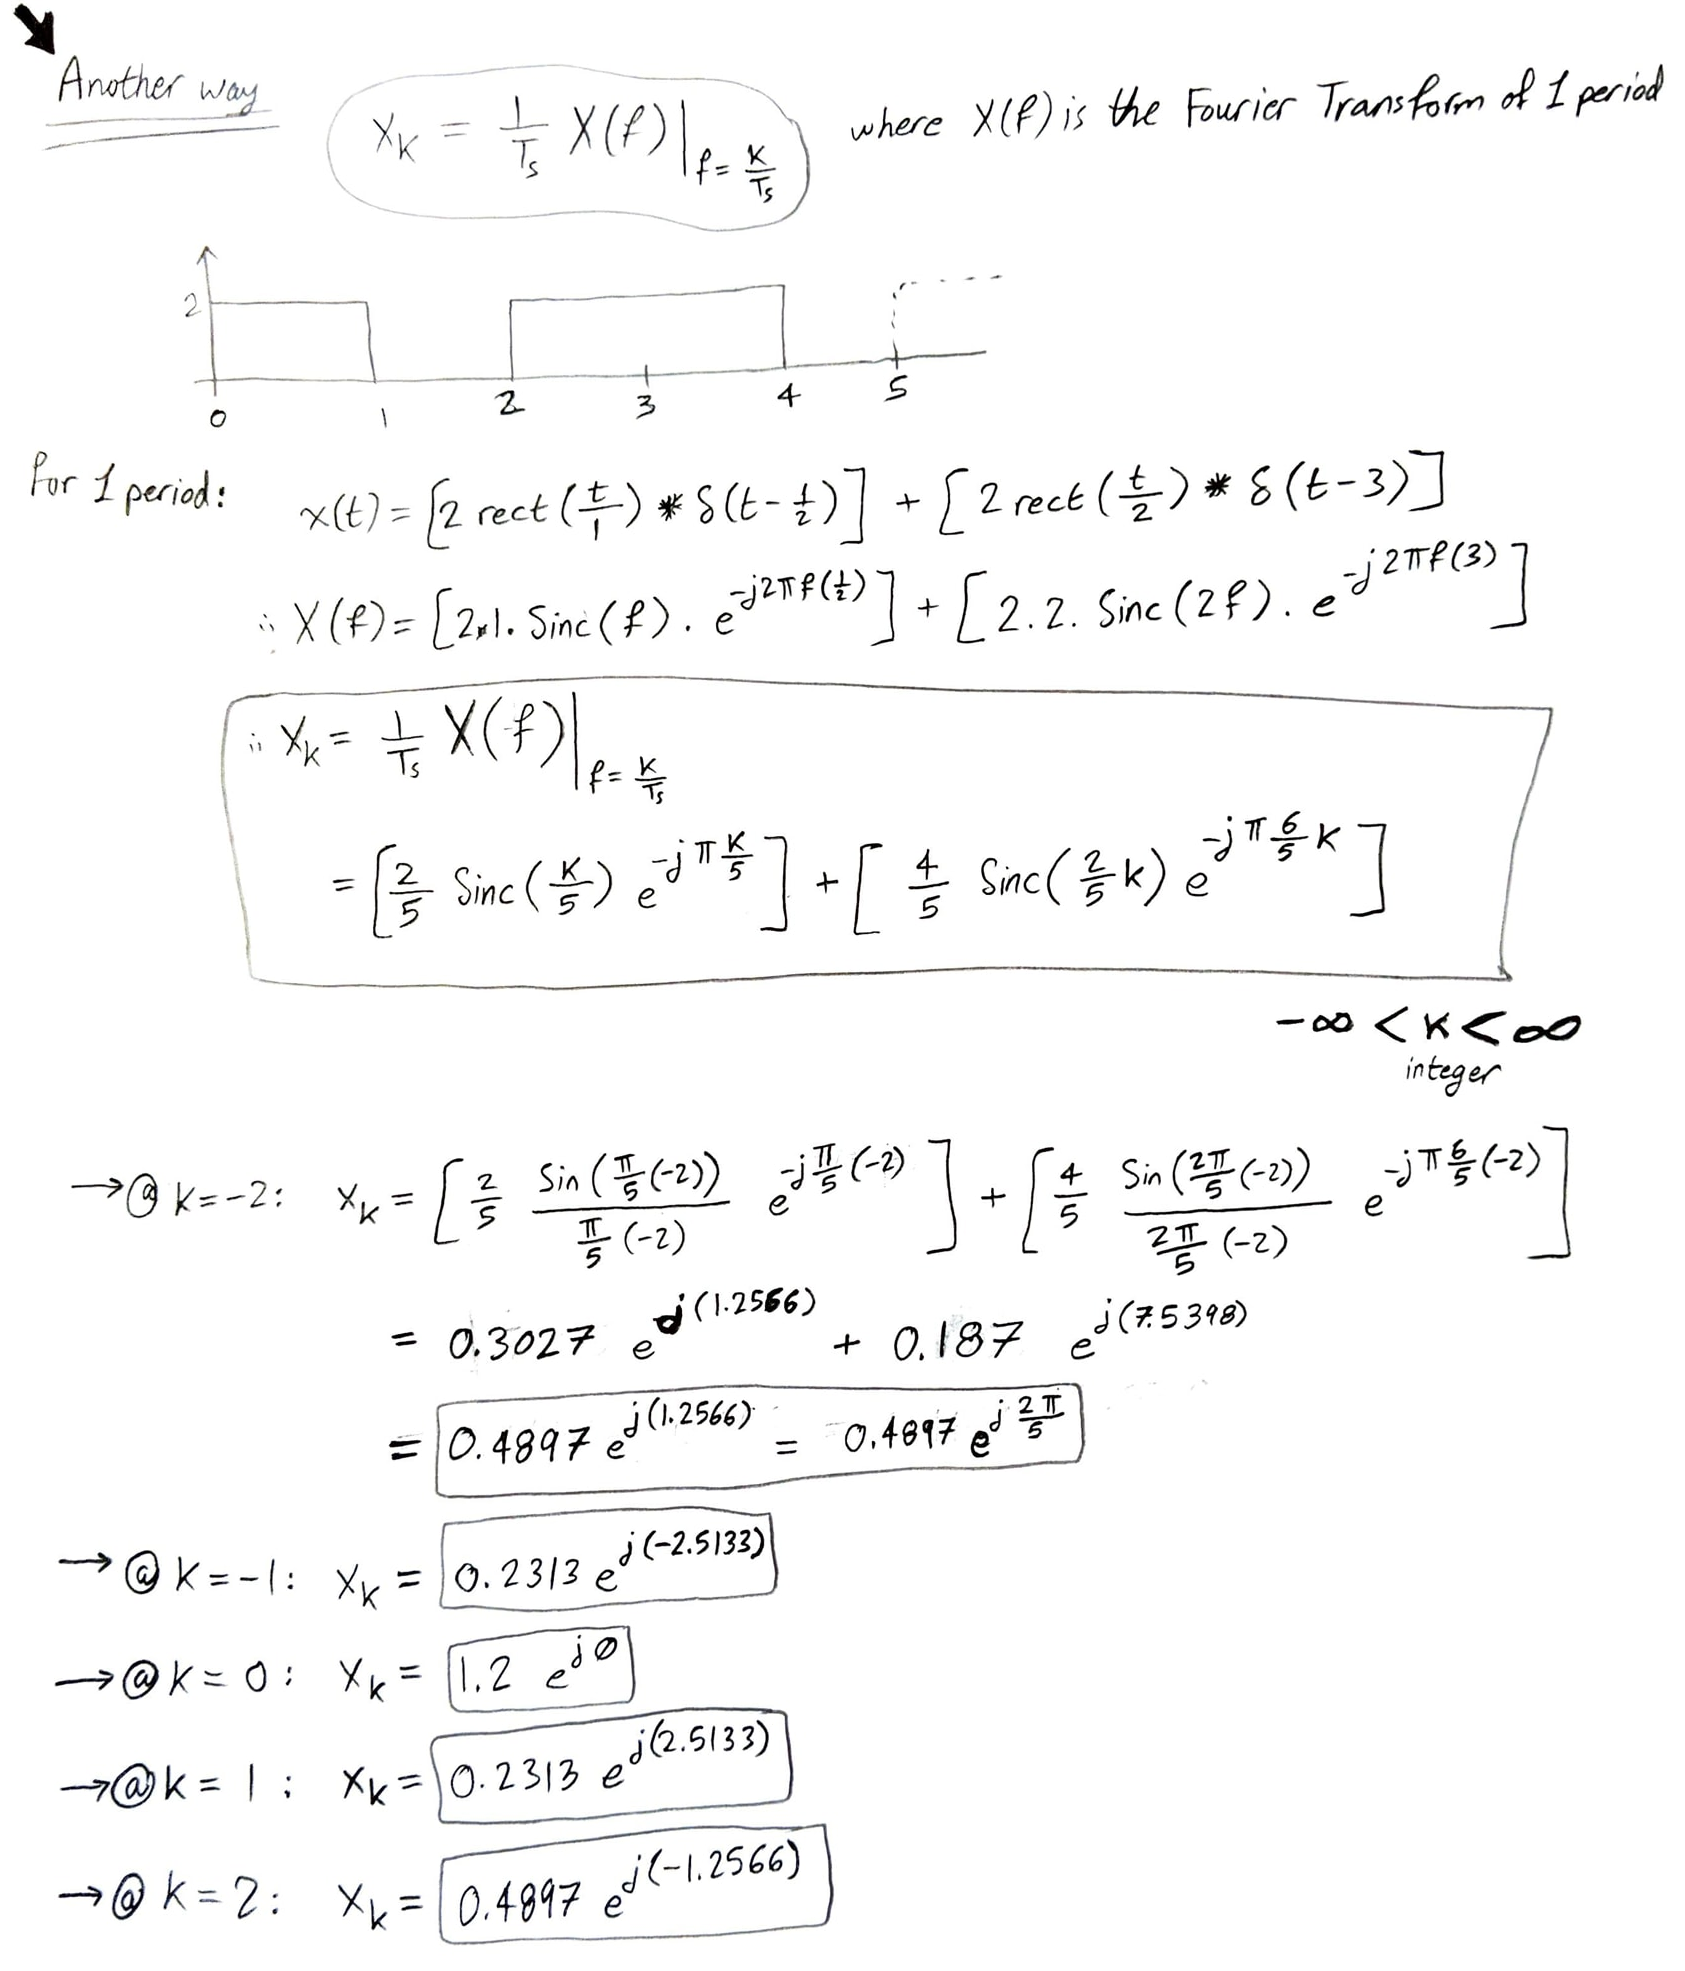 Another way
X_K = 1/Ts X(f)|f=K/Ts where X(f) is the Fourier Transform of 1 period
2
0 1 2 3 4 5
for 1 period: x(t) = [2 rect(t/1) * δ(t-1/2)] + [2 rect(t/2) * δ(t-3)]
∴ X(f) = [2×1. Sinc(f) . e^-j2πf(1/2)] + [2.2. Sinc(2f). e^-j2πf(3)]
∴ X_K = 1/Ts X(f)|f=K/Ts
= [2/5 Sinc(K/5) e^-jπK/5] + [4/5 Sinc(2/5 K) e^-jπ6/5 K]
-∞ < K < ∞
integer
→ @ K=-2: X_K = [2/5 Sin(π/5(-2))/(π/5(-2)) e^-jπ/5(-2)] + [4/5 Sin(2π/5(-2))/(2π/5(-2)) e^-jπ6/5(-2)]
= 0.3027 e^j(1.2566) + 0.187 e^j(7.5398)
= 0.4897 e^j(1.2566) = 0.4897 e^j2π/5
→ @ K=-1: X_K = 0.2313 e^j(-2.5133)
→ @ K=0: X_K = 1.2 e^j0
→ @ K=1: X_K = 0.2313 e^j(2.5133)
→ @ K=2: X_K = 0.4897 e^j(-1.2566)